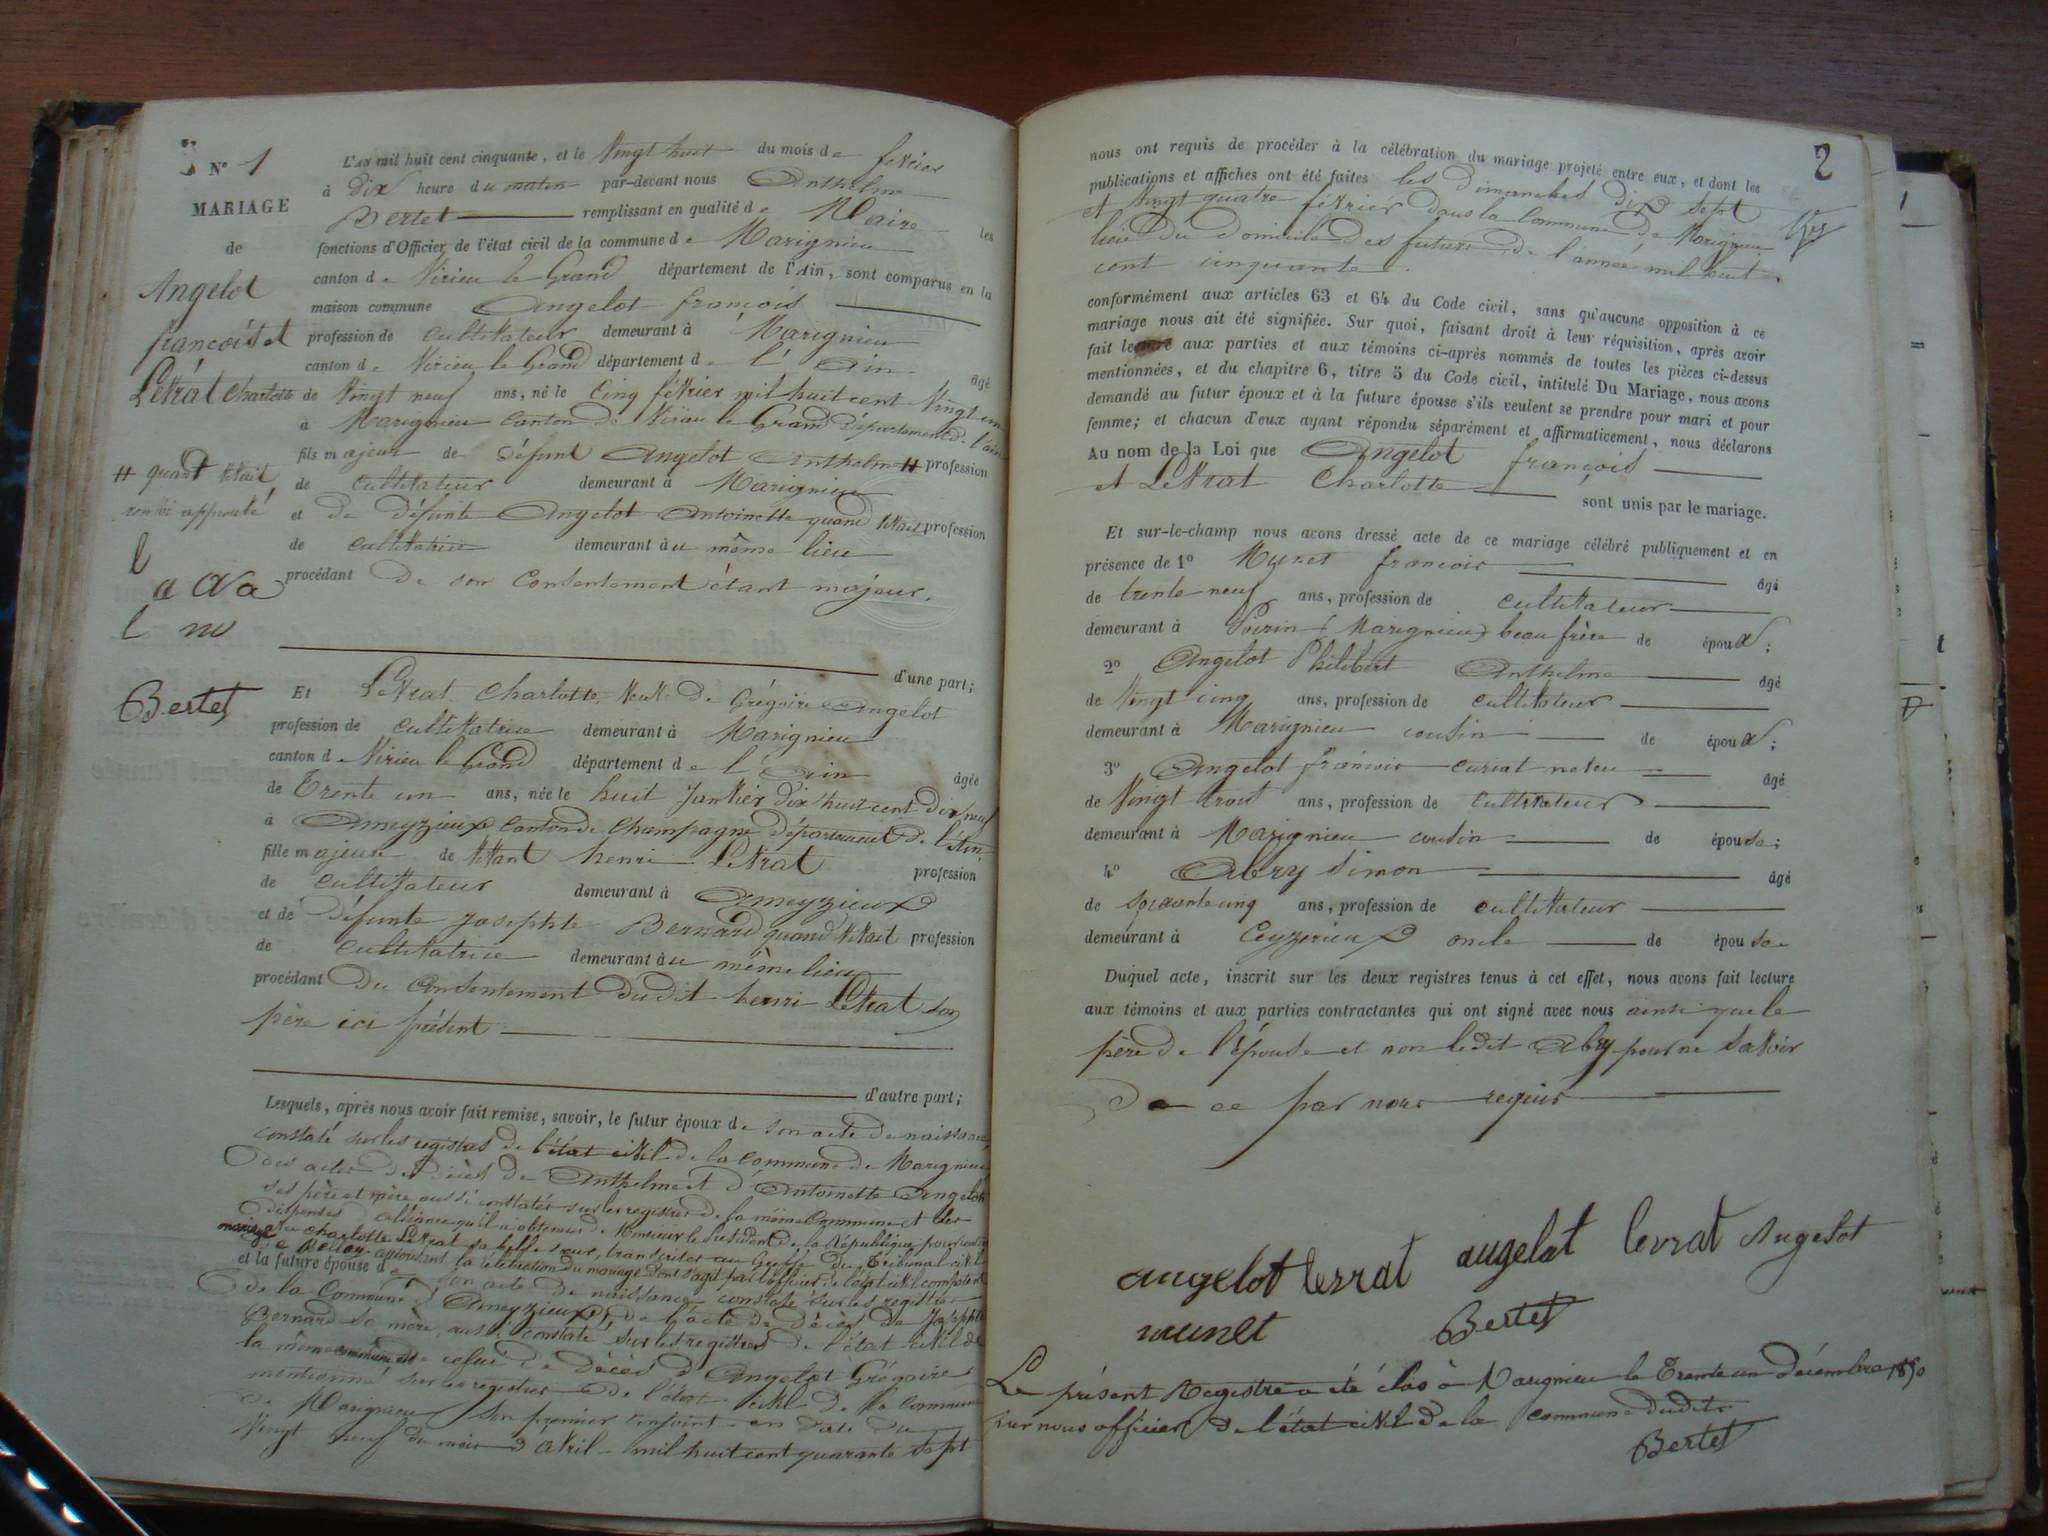 N° 1
MARIAGE
de
Angelot
françois et
Levrat Charlotte
# quand vivait
renvoi approuvé
Bertet
L'an mil huit cent cinquante, et le Vingt huit du mois de fevrier
à Dix heure du matin par-devant nous Anthelme
Bertet remplissant en qualité de Maire les
fonctions d'Officier de l'état civil de la commune de Marignieu
canton de Virieu le Grand département de l'Ain, sont comparus en la
maison commune Angelot françois
profession de cultivateur demeurant à Marignieu
canton de Virieu le Grand département de l'Ain âgé
de Vingt neuf ans, né le Cinq février mil huit cent Vingt un
à Marignieu Canton de Virieu le Grand Département de l'ain
fils majeur de défunt Angelot Anthelme # profession
de cultivateur demeurant à Marignieu
et de défunte Angelot Antoinette quand vivait profession
de cultivatrice demeurant au même lieu
procédant de son Consentement étant majeur.
d'une part;
Et Levrat Charlotte Veuve de Grégoire Angelot
profession de cultivatrice demeurant à Marignieu
canton de Virieu le Grand département de l'Ain âgée
de Trente un ans, née le huit Janvier Dix huit cent Dix neuf
à Ameyzieux Canton de Champagne Département de l'Ain,
fille majeure de vivant henri Levrat profession
de cultivateur demeurant à Ameyzieux
et de défunte Josephte Bernard quand vivait profession
de cultivatrice demeurant au même lieu
procédant du Consentement dudit henri Levrat son
père ici présent
d'autre part;
Lesquels, après nous avoir fait remise, savoir, le futur époux de son acte de naissance
constaté sur les registres de l'état civil de la Commune de Marignieu
des actes de décès de Anthelme et d'Antoinette Angelot
ses père et mère aussi constatés sur les registres de la même Commune et des
dispenses d'alliance qu'il a obtenues de Monsieur le Président de la République pour contracter
mariage avec Charlotte Levrat sa belle sœur, transcrites au Greffe du Tribunal civil
de Belley autorisant la célébration du mariage dont s'agit par l'officier de l'état civil compétent
et la future épouse de son acte de naissance constaté sur les registres
de la Commune d'Ameyzieux, de l'acte de Décès de Josephte
Bernard sa mère, aussi constaté sur les registres de l'état civil de
la même commune et de celui de Décès d'Angelot Grégoire
mentionné sur les registres de l'état civil de la Commune
de Marignieu son premier conjoint en date du
Vingt neuf du mois d'avril mil huit cent quarante sept
2
nous ont requis de procéder à la célébration du mariage projeté entre eux, et dont les
publications et affiches ont été faites les Dimanches dix sept
et Vingt quatre février dans la Commune de Marignieu
lieu du domicile des futurs de l'année mil huit
cent cinquante.
conformément aux articles 63 et 64 du Code civil, sans qu'aucune opposition à ce
mariage nous ait été signifiée. Sur quoi, faisant droit à leur réquisition, après avoir
fait lecture aux parties et aux témoins ci-après nommés de toutes les pièces ci-dessus
mentionnées, et du chapitre 6, titre 5 du Code civil, intitulé Du Mariage, nous avons
demandé au futur époux et à la future épouse s'ils veulent se prendre pour mari et pour
femme; et chacun d'eux ayant répondu séparément et affirmativement, nous déclarons
Au nom de la Loi que Angelot françois
et Levrat Charlotte sont unis par le mariage.
Et sur-le-champ nous avons dressé acte de ce mariage célébré publiquement et en
présence de 1° Munet françois âgé
de trente neuf ans, profession de cultivateur
demeurant à Poirin (Marignieu) beau frère de époux;
2° Angelot Philibert Anthelme âgé
de Vingt cinq ans, profession de cultivateur
demeurant à Marignieu cousin de époux;
3° Angelot françois curiat neveu âgé
de Vingt trois ans, profession de cultivateur
demeurant à Marignieu cousin de épouse;
4° Abry Simon âgé
de soixante cinq ans, profession de cultivateur
demeurant à Ceyzerieux oncle de épouse
Duquel acte, inscrit sur les deux registres tenus à cet effet, nous avons fait lecture
aux témoins et aux parties contractantes qui ont signé avec nous ainsi que le
père de l'épouse et non ledit Abry pour ne savoir
de ce par nous requis
angelot levrat angelot levrat Angelot
munet Bertet
Le présent Registre a été clos à Marignieu le Trente un décembre 1850
par nous officier de l'état civil de la commune dudit
Bertet